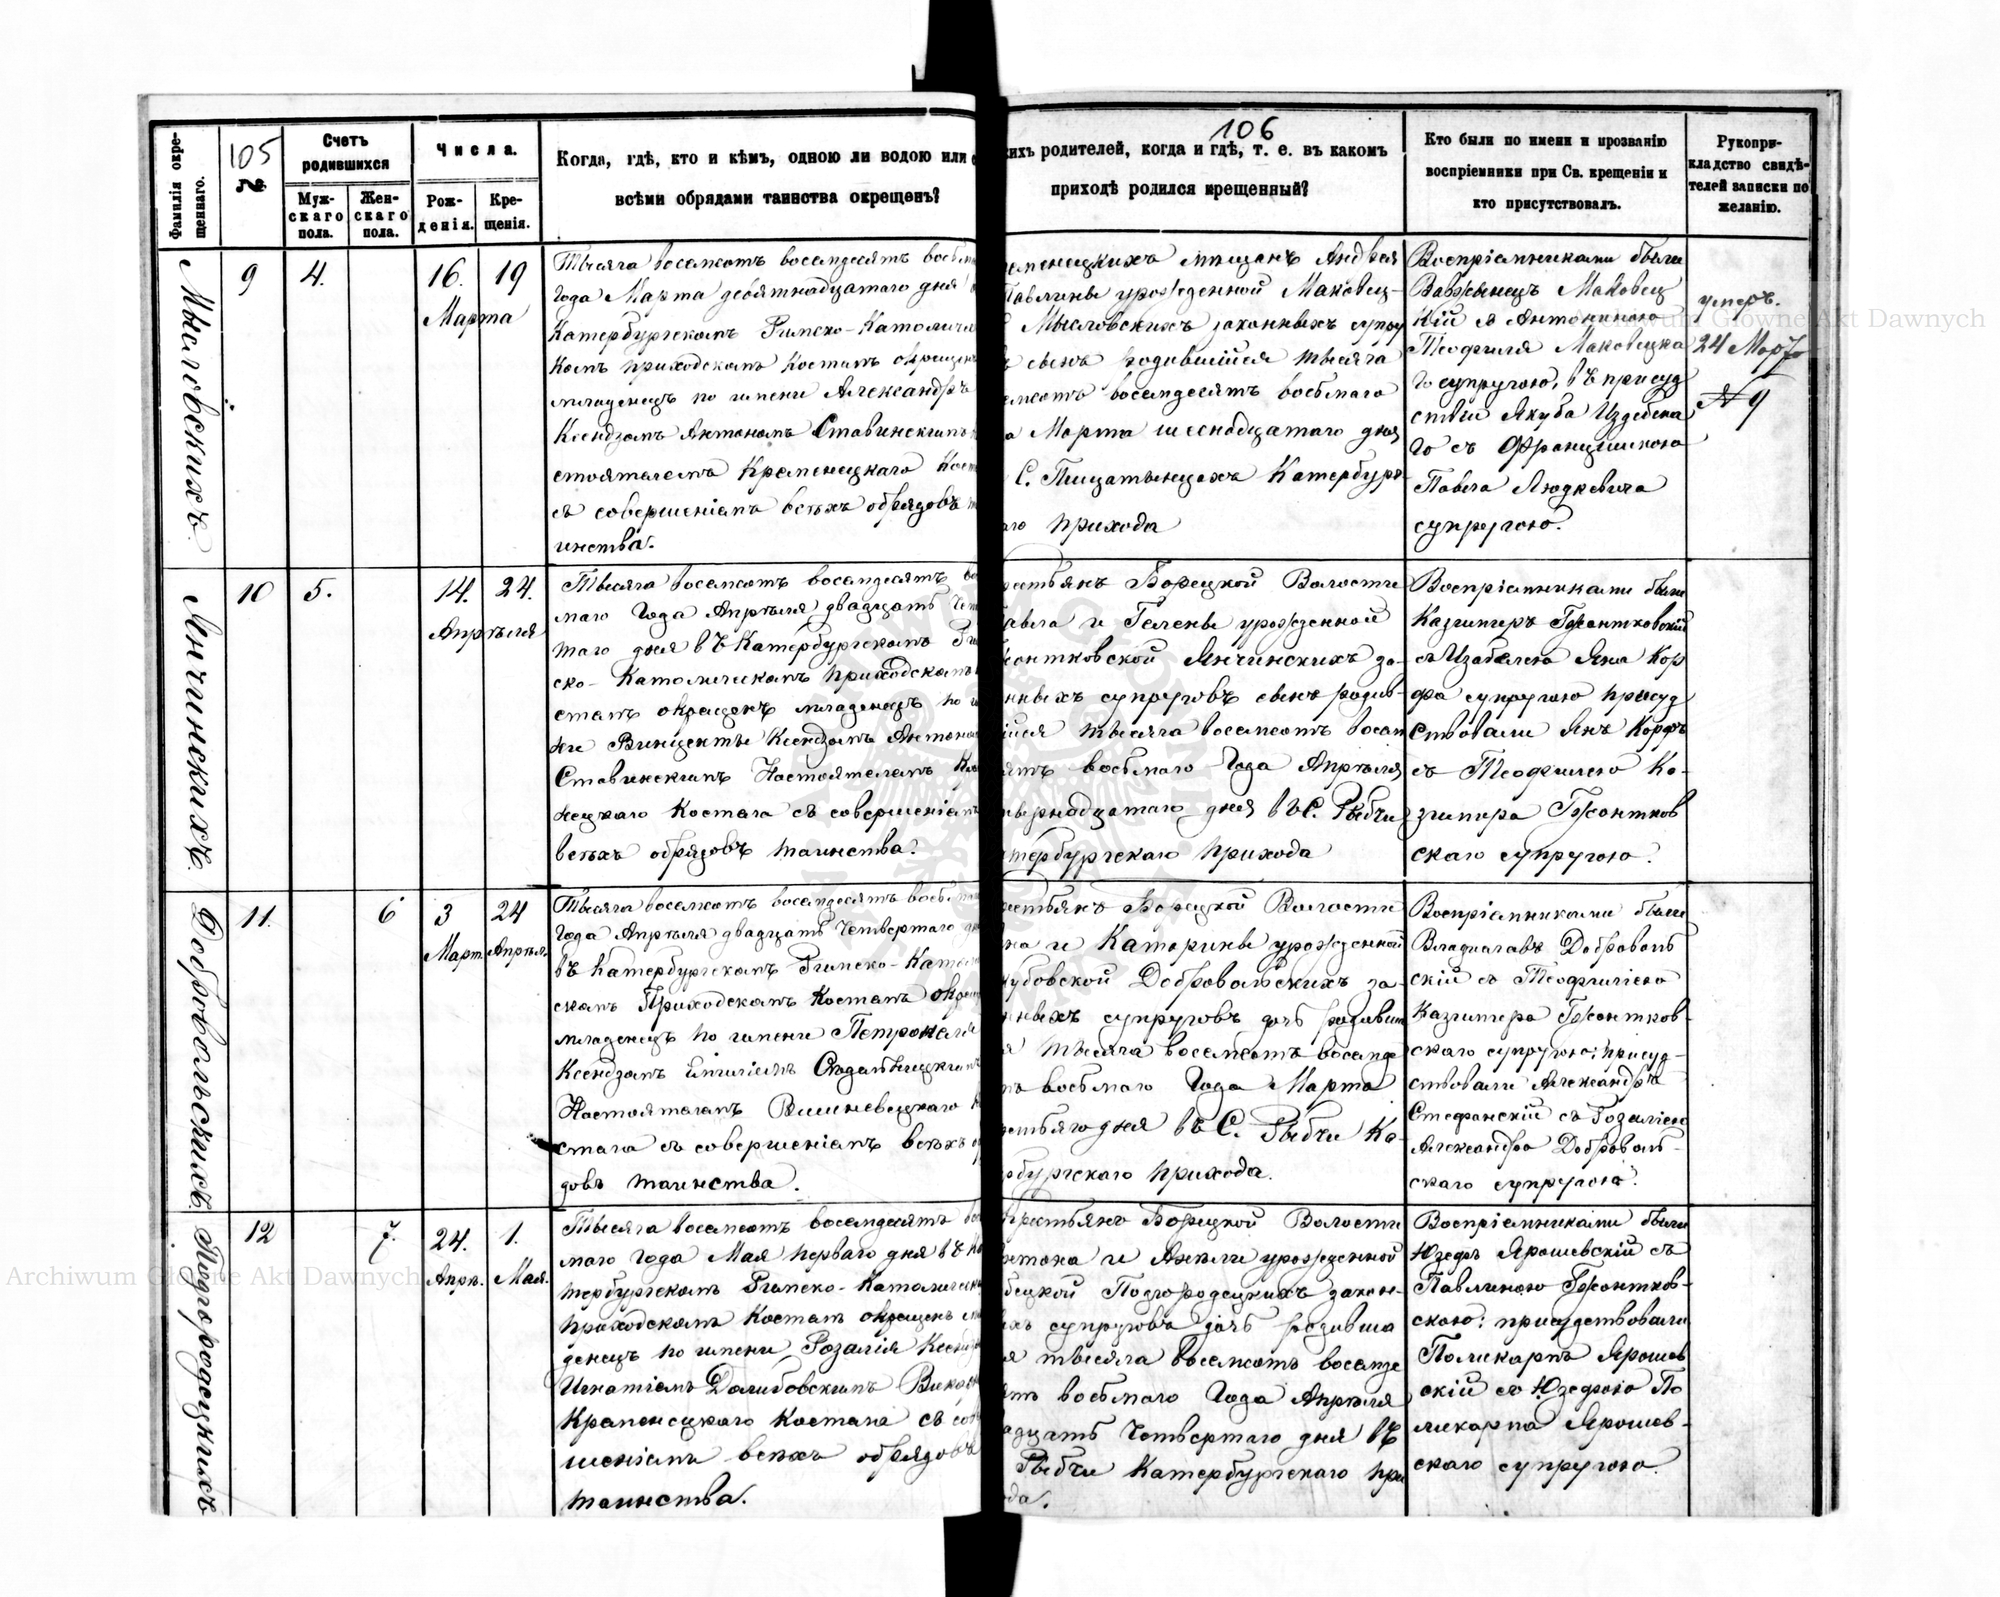 Фамилія окре-
щеннаго.
105
№
Счетъ
родившихся
Муж-
скаго
пола.
Жен-
скаго
пола.
Числа.
Рож-
денія.
Кре-
щенія.
Когда, гдѣ, кто и кѣмъ, одною ли водою или с
всѣми обрядами таинства окрещенъ?
106
кихъ родителей, когда и гдѣ, т. е. въ какомъ
приходѣ родился крещенный?
Кто были по имени и прозванію
воспріемники при Св. крещеніи и
кто присутствовалъ.
Рукопри-
кладство свидѣ-
телей записки по
желанію.
Мысловскихъ.
9
4.
16. 19
Марта
Тысяча восемсотъ восемдесятъ восьм
Года Марта девятнадцатаго дня
Катербургскомъ Римско-Католиче
комъ приходскомъ костелѣ окрещенъ
младенецъ по имени Александръ
Ксендзомъ Антономъ Ставинскимъ
стоятелемъ Кременецкаго Кост
съ совершеніемъ всѣхъ обрядовъ т
инства.
ременецкихъ мѣщанъ Андрея
Павлины урожденной Маковец-
Мысловскихъ законныхъ супру
сынъ родившійся тысяча
емсотъ восемдесятъ восьмаго
а Марта шеснадцатаго дня
С. Пищатынцахъ Катербург-
аго прихода
Воспріемниками были
Вавжинецъ Маковец
кій съ Антониною
Теофиля Маковецка
го супругою, въ присуд
ствіи Якуба Издебска
го съ Францишкою
Павла Людкевича
супругою.
умеръ.
24 Март
№ 9
Янчинскихъ.
10
5.
14. 24.
Апрѣля
Тысяча восемсотъ восемдесятъ во
маго Года Апрѣля двадцать Чет
таго дня въ Катербургскомъ Ри
ско-Католическомъ Приходскомъ
стелѣ окрещенъ младенецъ по и
ни Винценты Ксендзомъ Антоно
Ставинскимъ Настоятелемъ Кре
нецкаго Костела съ совершеніемъ
всѣхъ обрядовъ таинства.
рестьянъ Борецкой Волости
авла и Гелены урожденной
жонтковской Янчинскихъ за-
нныхъ супруговъ сынъ родив-
ійся тысяча восемсотъ восем
ятъ восьмаго Года Апрѣля
тырнадцатаго дня въ С. Рыбчи
атербургскаго прихода
Воспріемниками были
Казимеръ Гжонтковскій
съ Изабелею Яна Кор
фа супругою присуд
ствовали Янъ Корфъ
съ Теофилею Ка-
зимера Гжонтков
скаго супругою.
Добровольскихъ.
11.
6
3 24
Март. Апрѣля.
Тысяча восемсотъ восемдесятъ восьм
Года Апрѣля двадцать Четвертаго дн
въ Катербургскомъ Римско-Като
скомъ Приходскомъ Костелѣ окрещ
младенецъ по имени Петронеля
Ксендзомъ
Настоятелемъ Вишневецкаго К
стела съ совершеніемъ всѣхъ об
довъ таинства.
рестьянъ Борецкой Волости
на и Катарины урожденной
убовской Добровольскихъ за-
нныхъ супруговъ дочь родивш
я тысяча восемсотъ восемде
тъ восьмаго Года Марта
ретьяго дня въ С. Рыбчи Ка-
рбургскаго прихода.
Воспріемниками были
Владиславъ Доброволь
скій съ Теофилею
Казимера Гжонтков-
скаго супругою; присуд-
ствовали Александръ
Стефанскій съ Розаліею
Александра Доброволь-
скаго супругою.
Подгородецкихъ
12
7.
24. 1.
Апрп. Мая.
Тысяча восемсотъ восемдесятъ вос
маго Года Мая перваго дня въ Ка
тербургскомъ Римско-Католическ
приходскомъ Костелѣ окрещенъ мла
денецъ по имени Розалія Ксендз
Игнатіемъ Далибовскимъ Викар
Кременецкаго Костела съ сов
шеніемъ всѣхъ обрядовъ
таинства.
Крестьянъ Борецкой Волости
нтона и Анели урожденной
бецкой Подгородецкихъ закон-
хъ супруговъ дочь родивша
я тысяча восемсотъ восемде
тъ восьмаго Года Апрѣля
адцать Четвертаго дня въ
Рыбчи Катербургскаго при
ода.
Воспріемниками были
Юзефъ Ярошевскій съ
Павлиною Гжонтков-
скою: присудствовали
Поликарпъ Ярошев
скій съ Юзефою По
ликарпа Ярошев-
скаго супругою.
Archiwum Główne Akt Dawnych
Archiwum Główne Akt Dawnych